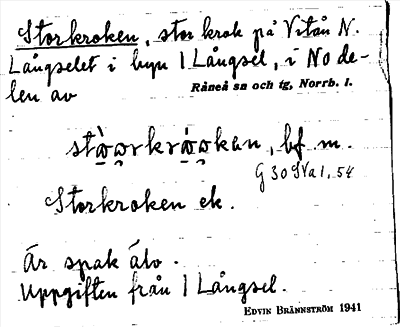 Storkroken, stor krok på Vitån N.
Långselet i byn 1 Långsel, i No de-
len av
Råneå sn och tg, Norrb. l.
stàọrkràọkan, bf m.
G 30 SVa 1, 54
Storkroken ek.
Är spak älv.
Uppgiften från 1 Långsel.
EDVIN BRÄNNSTRÖM 1941